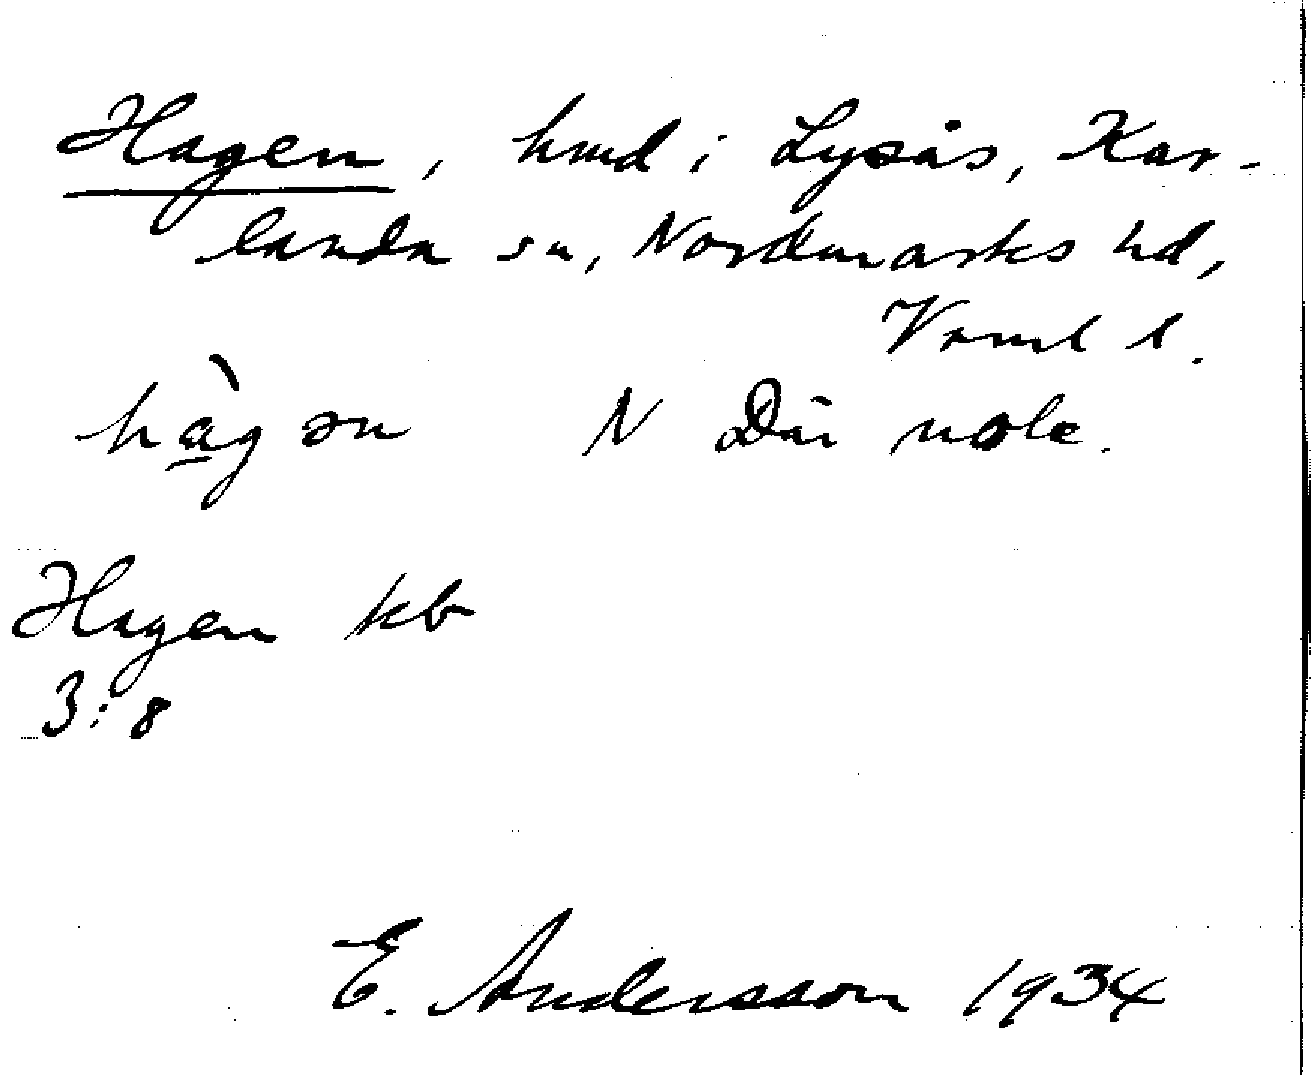 Hagen, hmd i Lysås, Kar-
landa sn, Nordmarks hd,
Värml l.
hàgən N Där uole.
Hagen kb
3:8
E. Andersson 1934